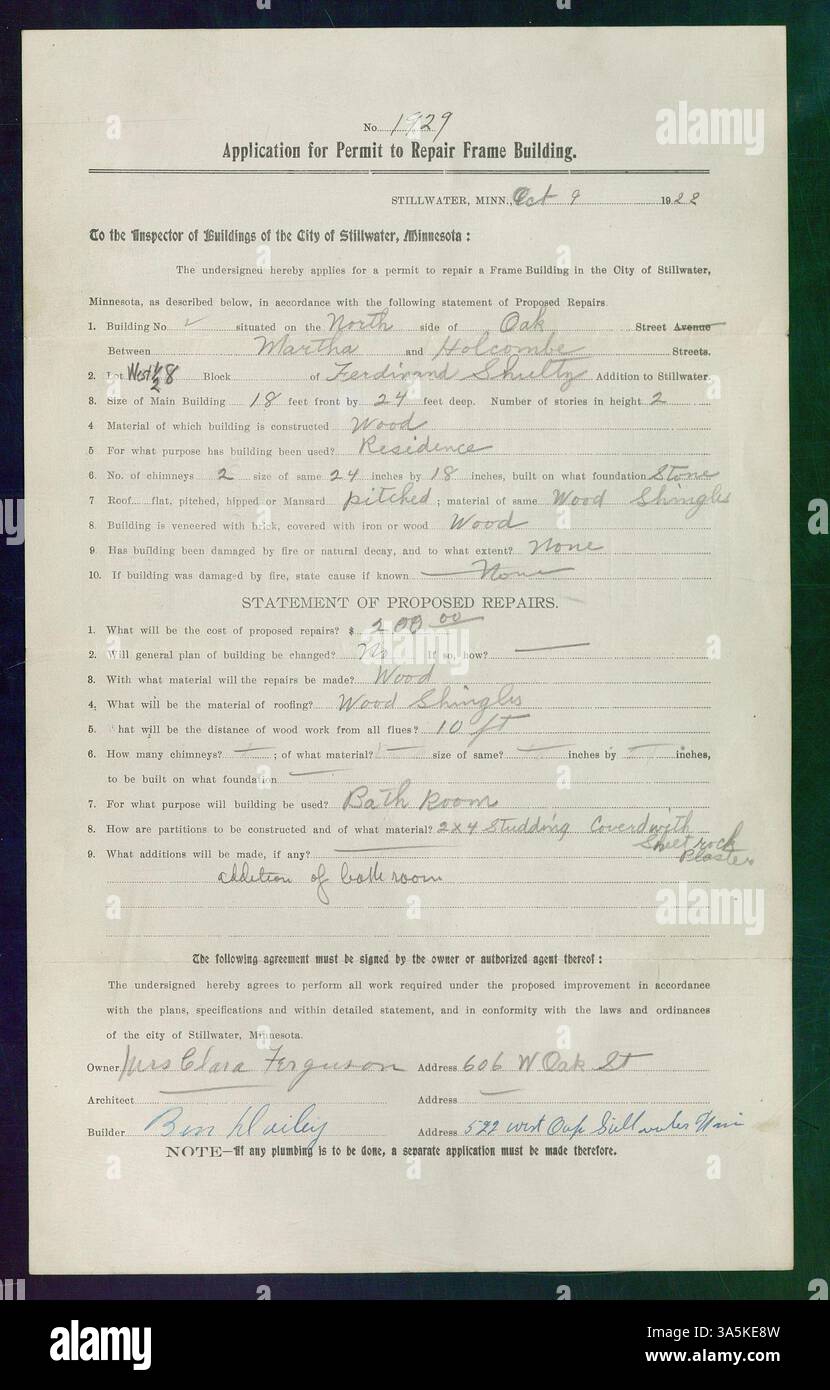 No. 1929
Application for Permit to Repair Frame Building.
STILLWATER, MINN., Oct 9 1922
To the Inspector of Buildings of the City of Stillwater, Minnesota:
The undersigned hereby applies for a permit to repair a Frame Building in the City of Stillwater,
Minnesota, as described below, in accordance with the following statement of Proposed Repairs.
1. Building No. ✓ situated on the North side of Oak Street Avenue
Between Martha and Holcombe Streets.
2. Lot West 1/2 8 Block of Ferdinand Shultz Addition to Stillwater.
3. Size of Main Building 18 feet front by 24 feet deep. Number of stories in height 2
4 Material of which building is constructed Wood
5 For what purpose has building been used? Residence
6. No. of chimneys 2 size of same 24 inches by 18 inches, built on what foundation Stone
7 Roof flat, pitched, hipped or Mansard pitched; material of same Wood Shingles
8. Building is veneered with brick, covered with iron or wood Wood
9 Has building been damaged by fire or natural decay, and to what extent? None
10. If building was damaged by fire, state cause if known — None
STATEMENT OF PROPOSED REPAIRS.
1. What will be the cost of proposed repairs? $ 200.00
2. Will general plan of building be changed? No If so, how? —
3. With what material will the repairs be made? Wood
4. What will be the material of roofing? Wood Shingles
5. hat will be the distance of wood work from all flues? 10 ft
6. How many chimneys? — ; of what material? — size of same? — inches by — inches,
to be built on what foundation —
7. For what purpose will building be used? Bath Room
8. How are partitions to be constructed and of what material? 2x4 Studding Coverd with
Sheet rock
Plaster
9. What additions will be made, if any? —
addition of bath room
The following agreement must be signed by the owner or authorized agent thereof:
The undersigned hereby agrees to perform all work required under the proposed improvement in accordance
with the plans, specifications and within detailed statement, and in conformity with the laws and ordinances
of the city of Stillwater, Minnesota.
Owner Mrs Clara Ferguson Address 606 W Oak St
Architect — Address —
Builder Ben Dailey Address 522 West Oak Stillwater Minn
NOTE—If any plumbing is to be done, a separate application must be made therefore.
alamy
Image ID: 3A5KE8W
www.alamy.com